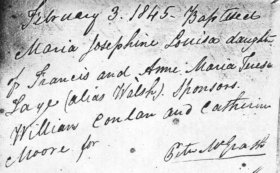 February 3. 1845. Baptised
Maria Josephine Louisa daught
of Francis and Anne Maria Teresa
Laye (alias Walsh). Sponsors.
William Conlan and Catherine
Moore for
Peter McGrath